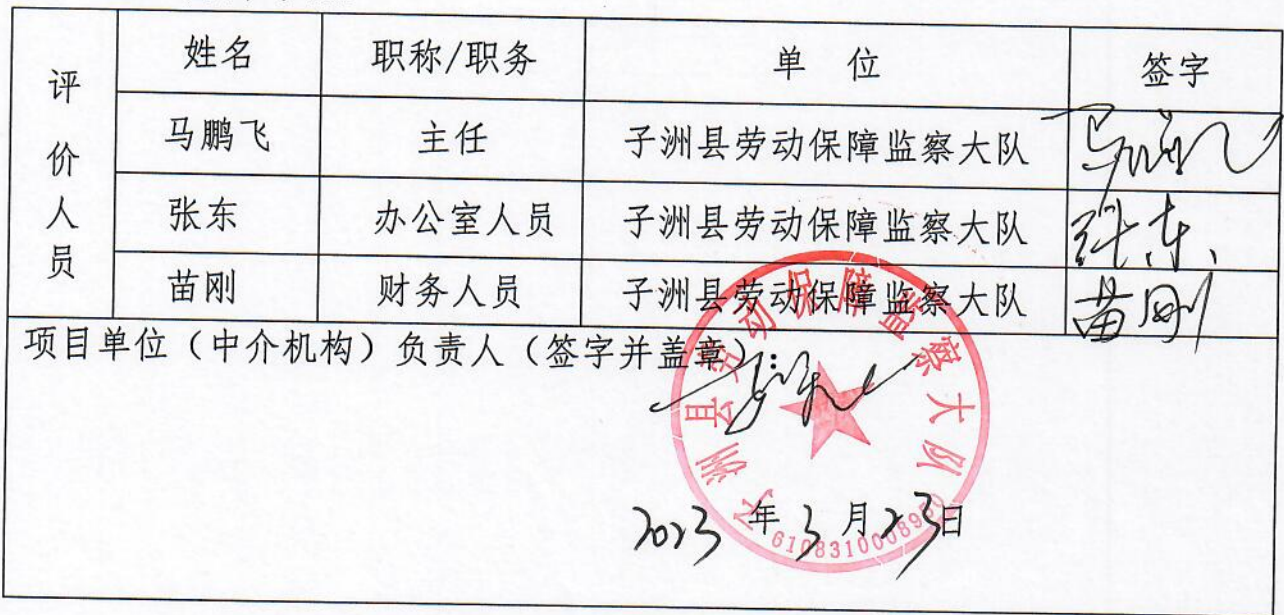 评价人员
姓名 职称/职务 单 位 签字
马鹏飞 主任 子洲县劳动保障监察大队
张东 办公室人员 子洲县劳动保障监察大队 张东
苗刚 财务人员 子洲县劳动保障监察大队 苗刚
项目单位（中介机构）负责人（签字并盖章）：
子洲县劳动保障监察大队
2023年3月23日